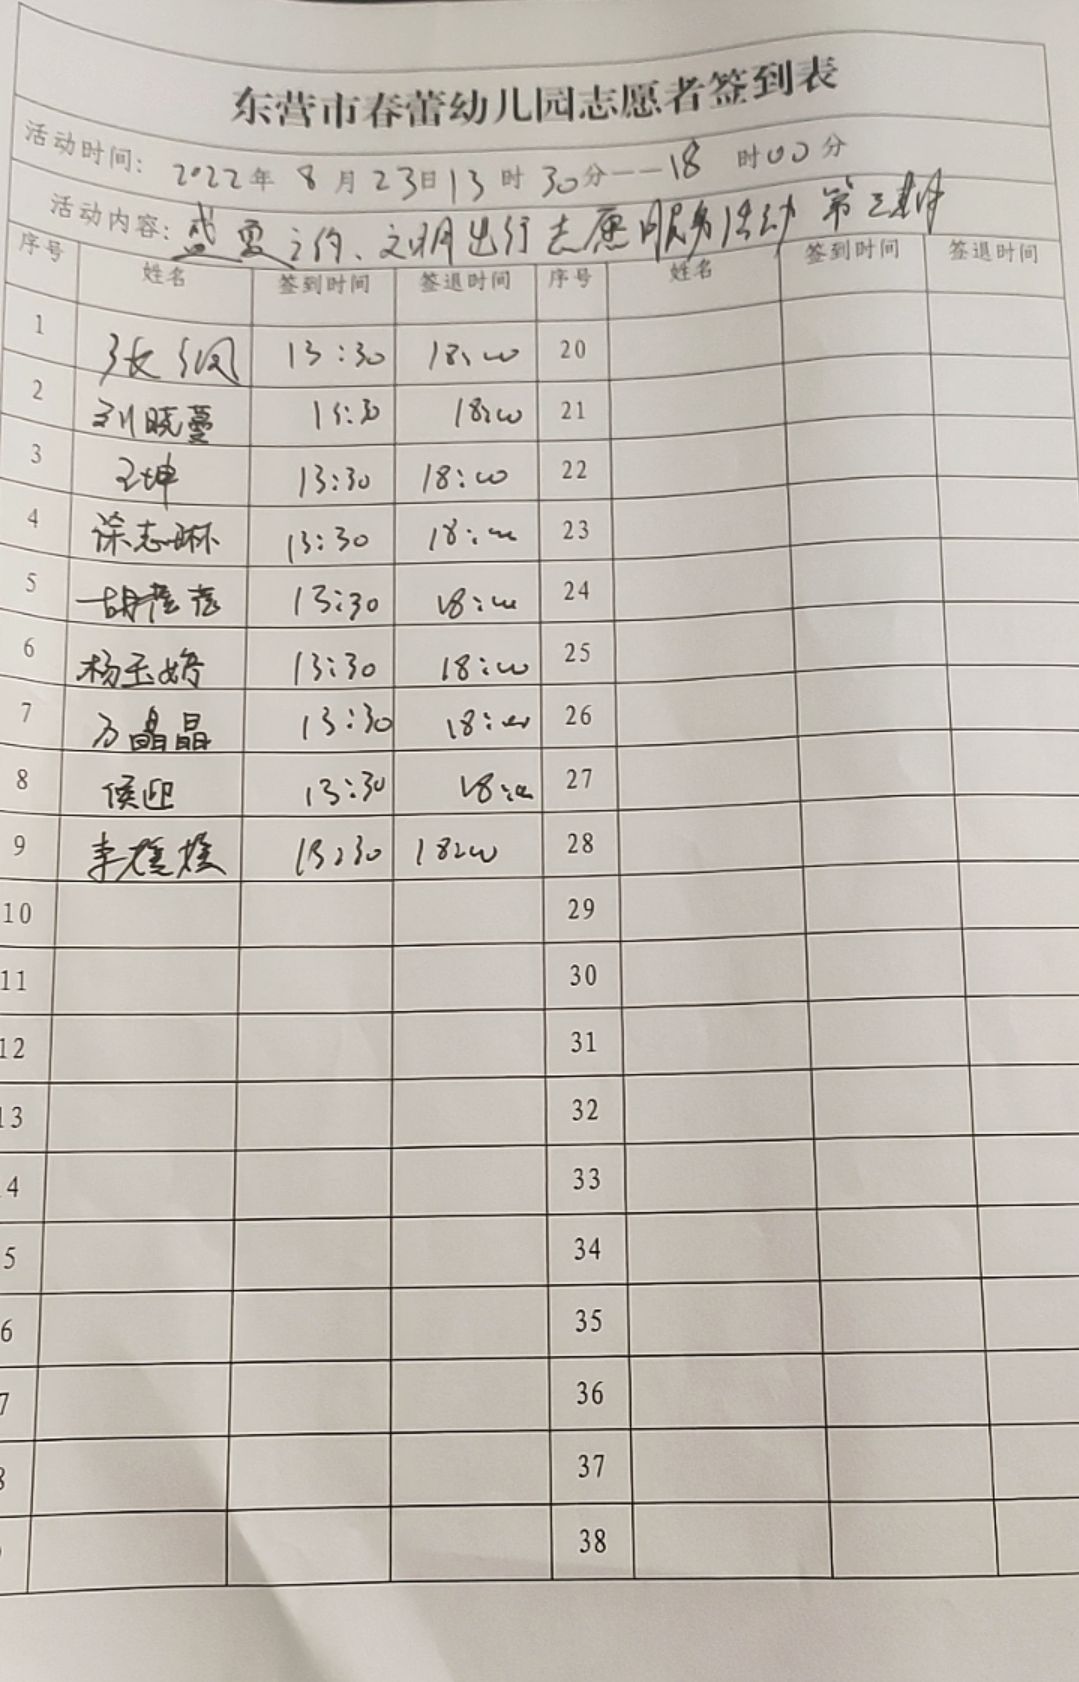 东营市春蕾幼儿园志愿者签到表
活动时间: 2022年 8月23日13时30分——18时00分
活动内容: 盛夏之约、文明出行志愿服务活动 第三期
序号 姓名 签到时间 签退时间 序号 姓名 签到时间 签退时间
1 张 13:30 18:00 20
2 刘晓蔓 13:30 18:00 21
3 王坤 13:30 18:00 22
4 徐志琳 13:30 18:00 23
5 胡 13:30 18:00 24
6 杨玉婷 13:30 18:00 25
7 万晶晶 13:30 18:00 26
8 侯迎 13:30 18:00 27
9 李 13:30 18:00 28
10 29
11 30
12 31
13 32
4 33
5 34
6 35
7 36
8 37
38